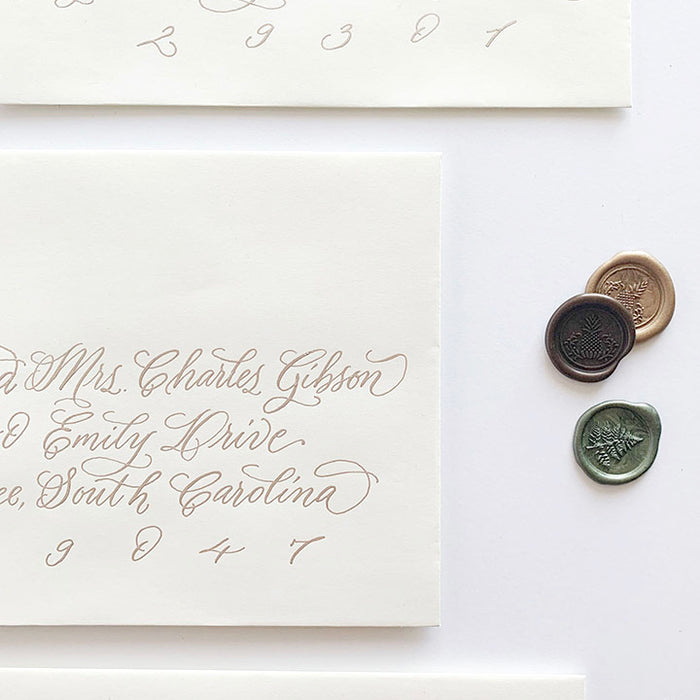 2 9 3 0 1
d Mrs. Charles Gibson
0 Emily Drive
ee, South Carolina
9 0 4 7